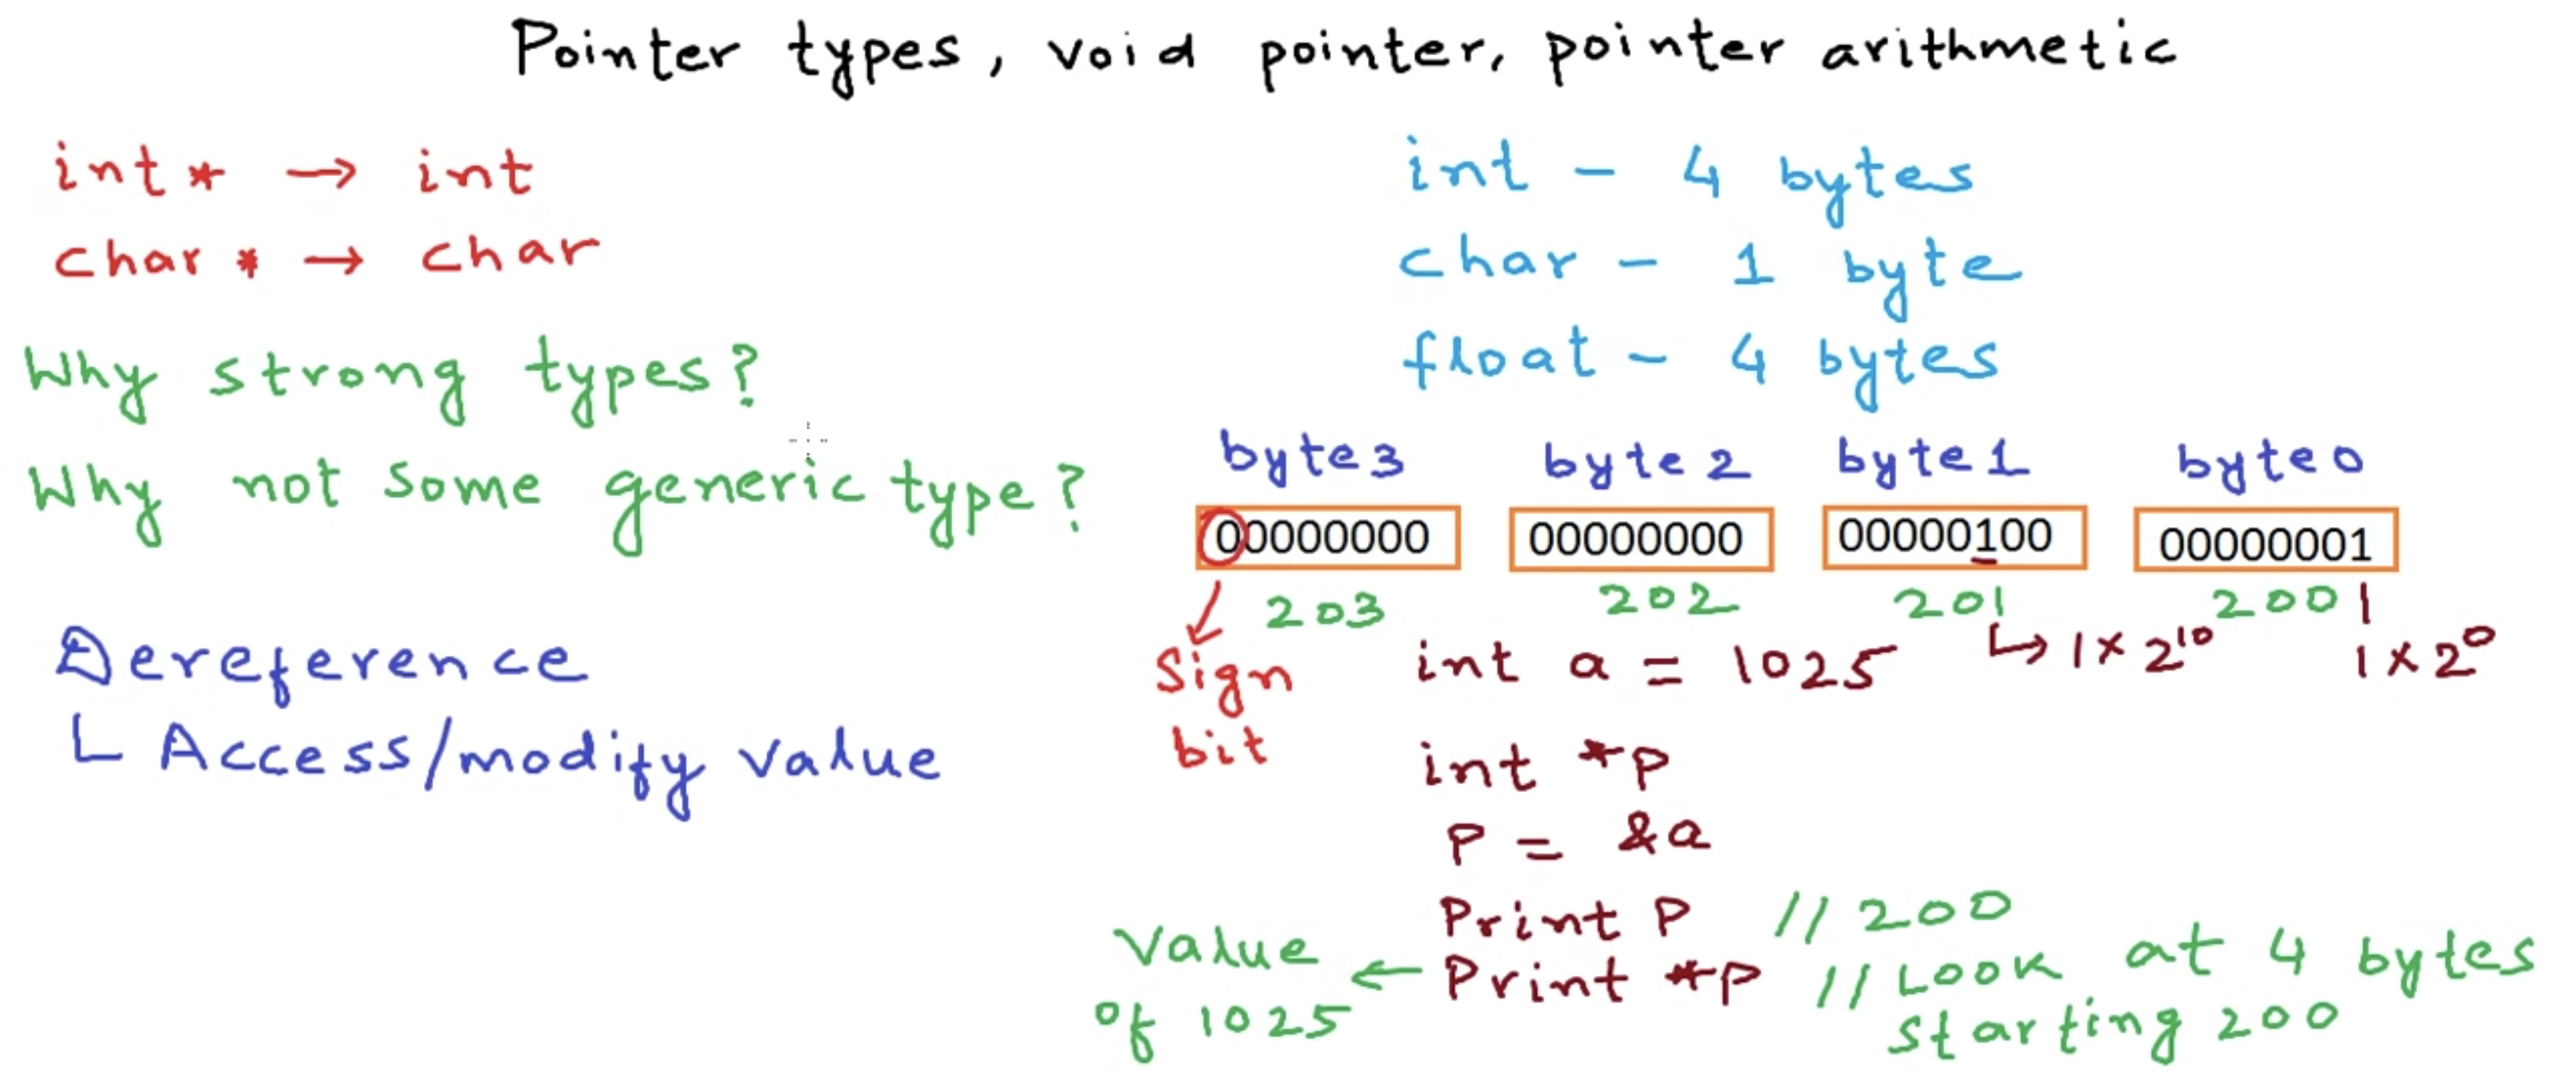 Pointer types, void pointer, pointer arithmetic
int* → int
char* → char
Why strong types?
Why not some generic type?
Dereference
└ Access/modify value
int - 4 bytes
char - 1 byte
float - 4 bytes
byte3 byte2 byte1 byte0
00000000 00000000 00000100 00000001
203 202 201 200
Sign
bit
↳ 1 x 2^10
1 x 2^0
int a = 1025
int *p
P = &a
Print P // 200
Print *p // Look at 4 bytes
starting 200
Value
of 1025